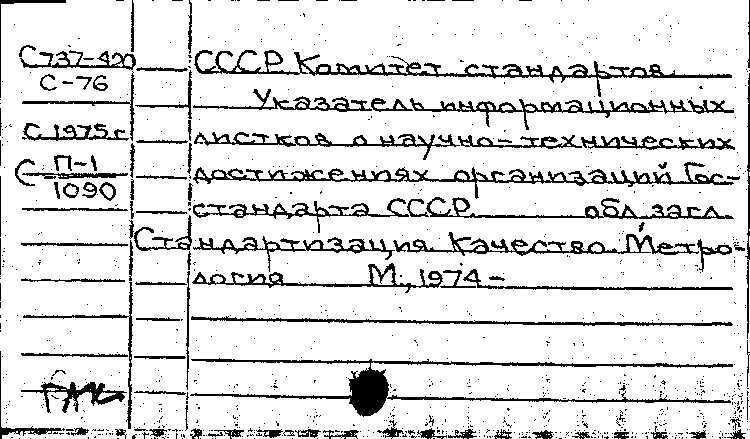 С737-420
С-76
С 1975 г
С П-1
1090
СССР. Комитет стандартов.
Указатель информационных
листков о научно-технических
достижениях организаций Гос-
стандарта СССР. обл. загл.
Стандартизация. Качество. Метро-
логия М., 1974-